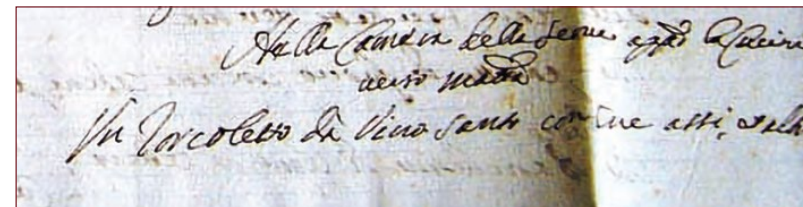 Nella Camera delle Serve app.o la Cucina
verso matt.a
Un Torcoletto da Vino Santo con sue assi, e